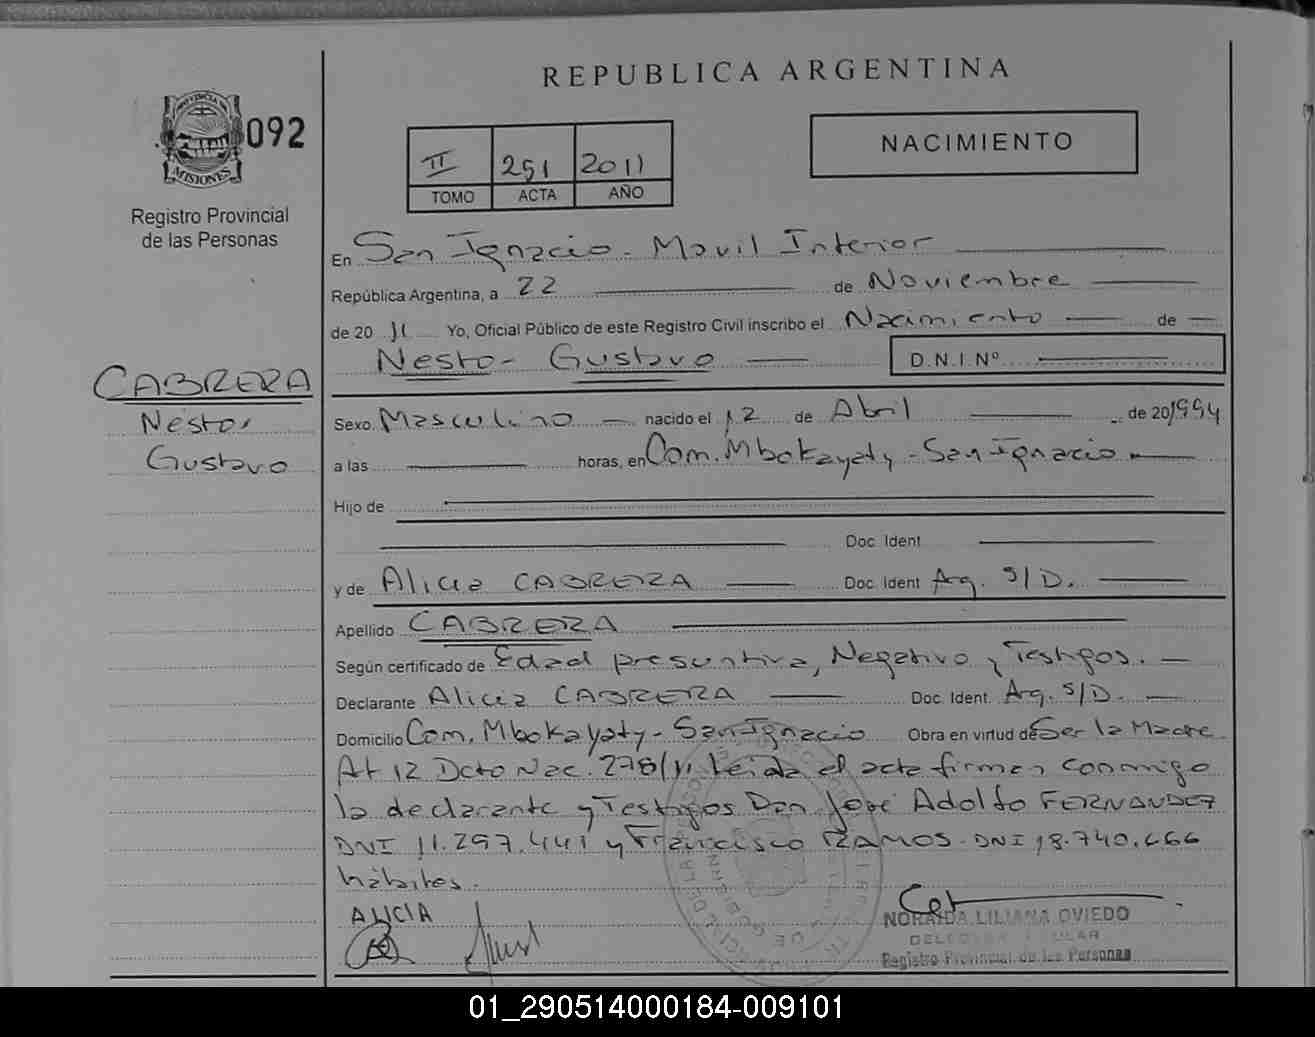 REPUBLICA ARGENTINA
PROVINCIA DE
MISIONES
092
Registro Provincial
de las Personas
II 251 2011
TOMO ACTA AÑO
NACIMIENTO
En San Ignacio - Movil Interior
República Argentina, a 22 de Noviembre
de 20 11 Yo, Oficial Público de este Registro Civil inscribo el Nacimiento de
Nestor Gustavo D.N.I Nº
CABRERA
Nestor
Gustavo
Sexo Masculino nacido el 12 de Abril de 20 1994
a las horas, en Com. Mbokayaty - San Ignacio
Hijo de
Doc. Ident
y de Alicia CABRERA Doc. Ident Arg. S/D.
Apellido CABRERA
Según certificado de Edad presuntiva, Negativo y Testigos.
Declarante Alicia CABRERA Doc. Ident. Arg. S/D.
Domicilio Com. Mbokayaty - San Ignacio Obra en virtud de Ser la Madre
At 12 Dcto Nac. 278/11 Leida el acta firman conmigo
la declarante y Testigos Don José Adolfo FERNANDEZ
DNI 11.297.441 y Francisco RAMOS. DNI 18.740.666
hábiles.
ALICIA
NORAIDA LILIANA OVIEDO
Registro Provincial de las Personas
01_290514000184-009101